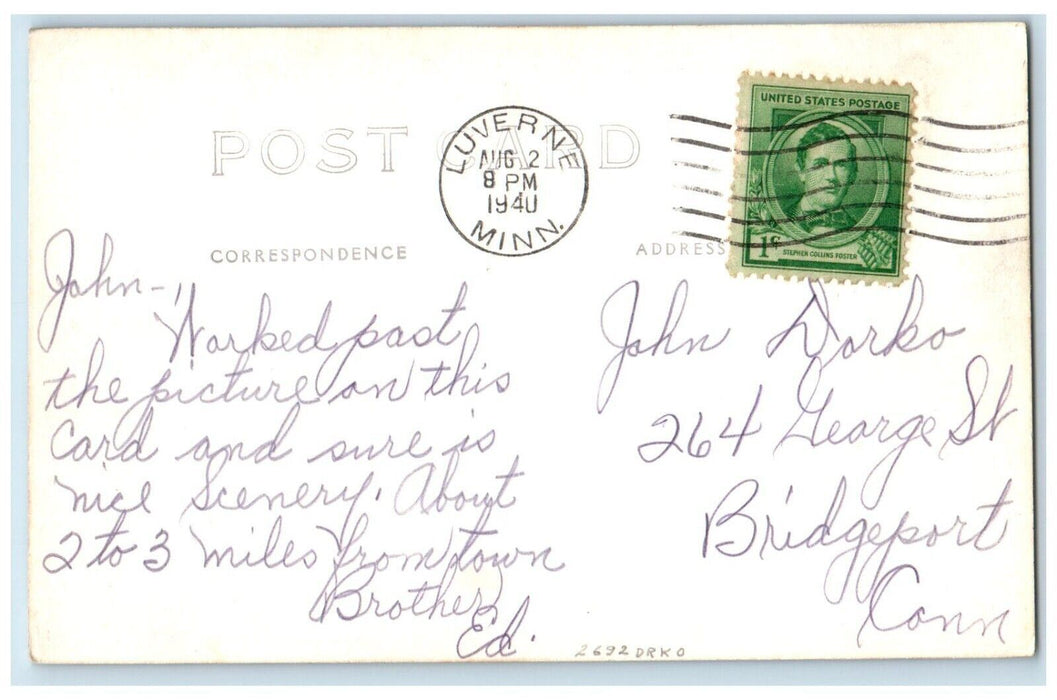 POST CARD
LUVERNE
AUG 2
8 PM
1940
MINN.
UNITED STATES POSTAGE
1¢
STEPHEN COLLINS FOSTER
CORRESPONDENCE
ADDRESS
John -
Worked past
the picture on this
Card and sure is
nice Scenery. About
2 to 3 miles from town
Brother
Ed.
John Dorko
264 George St
Bridgeport
Conn
2692 DRKO